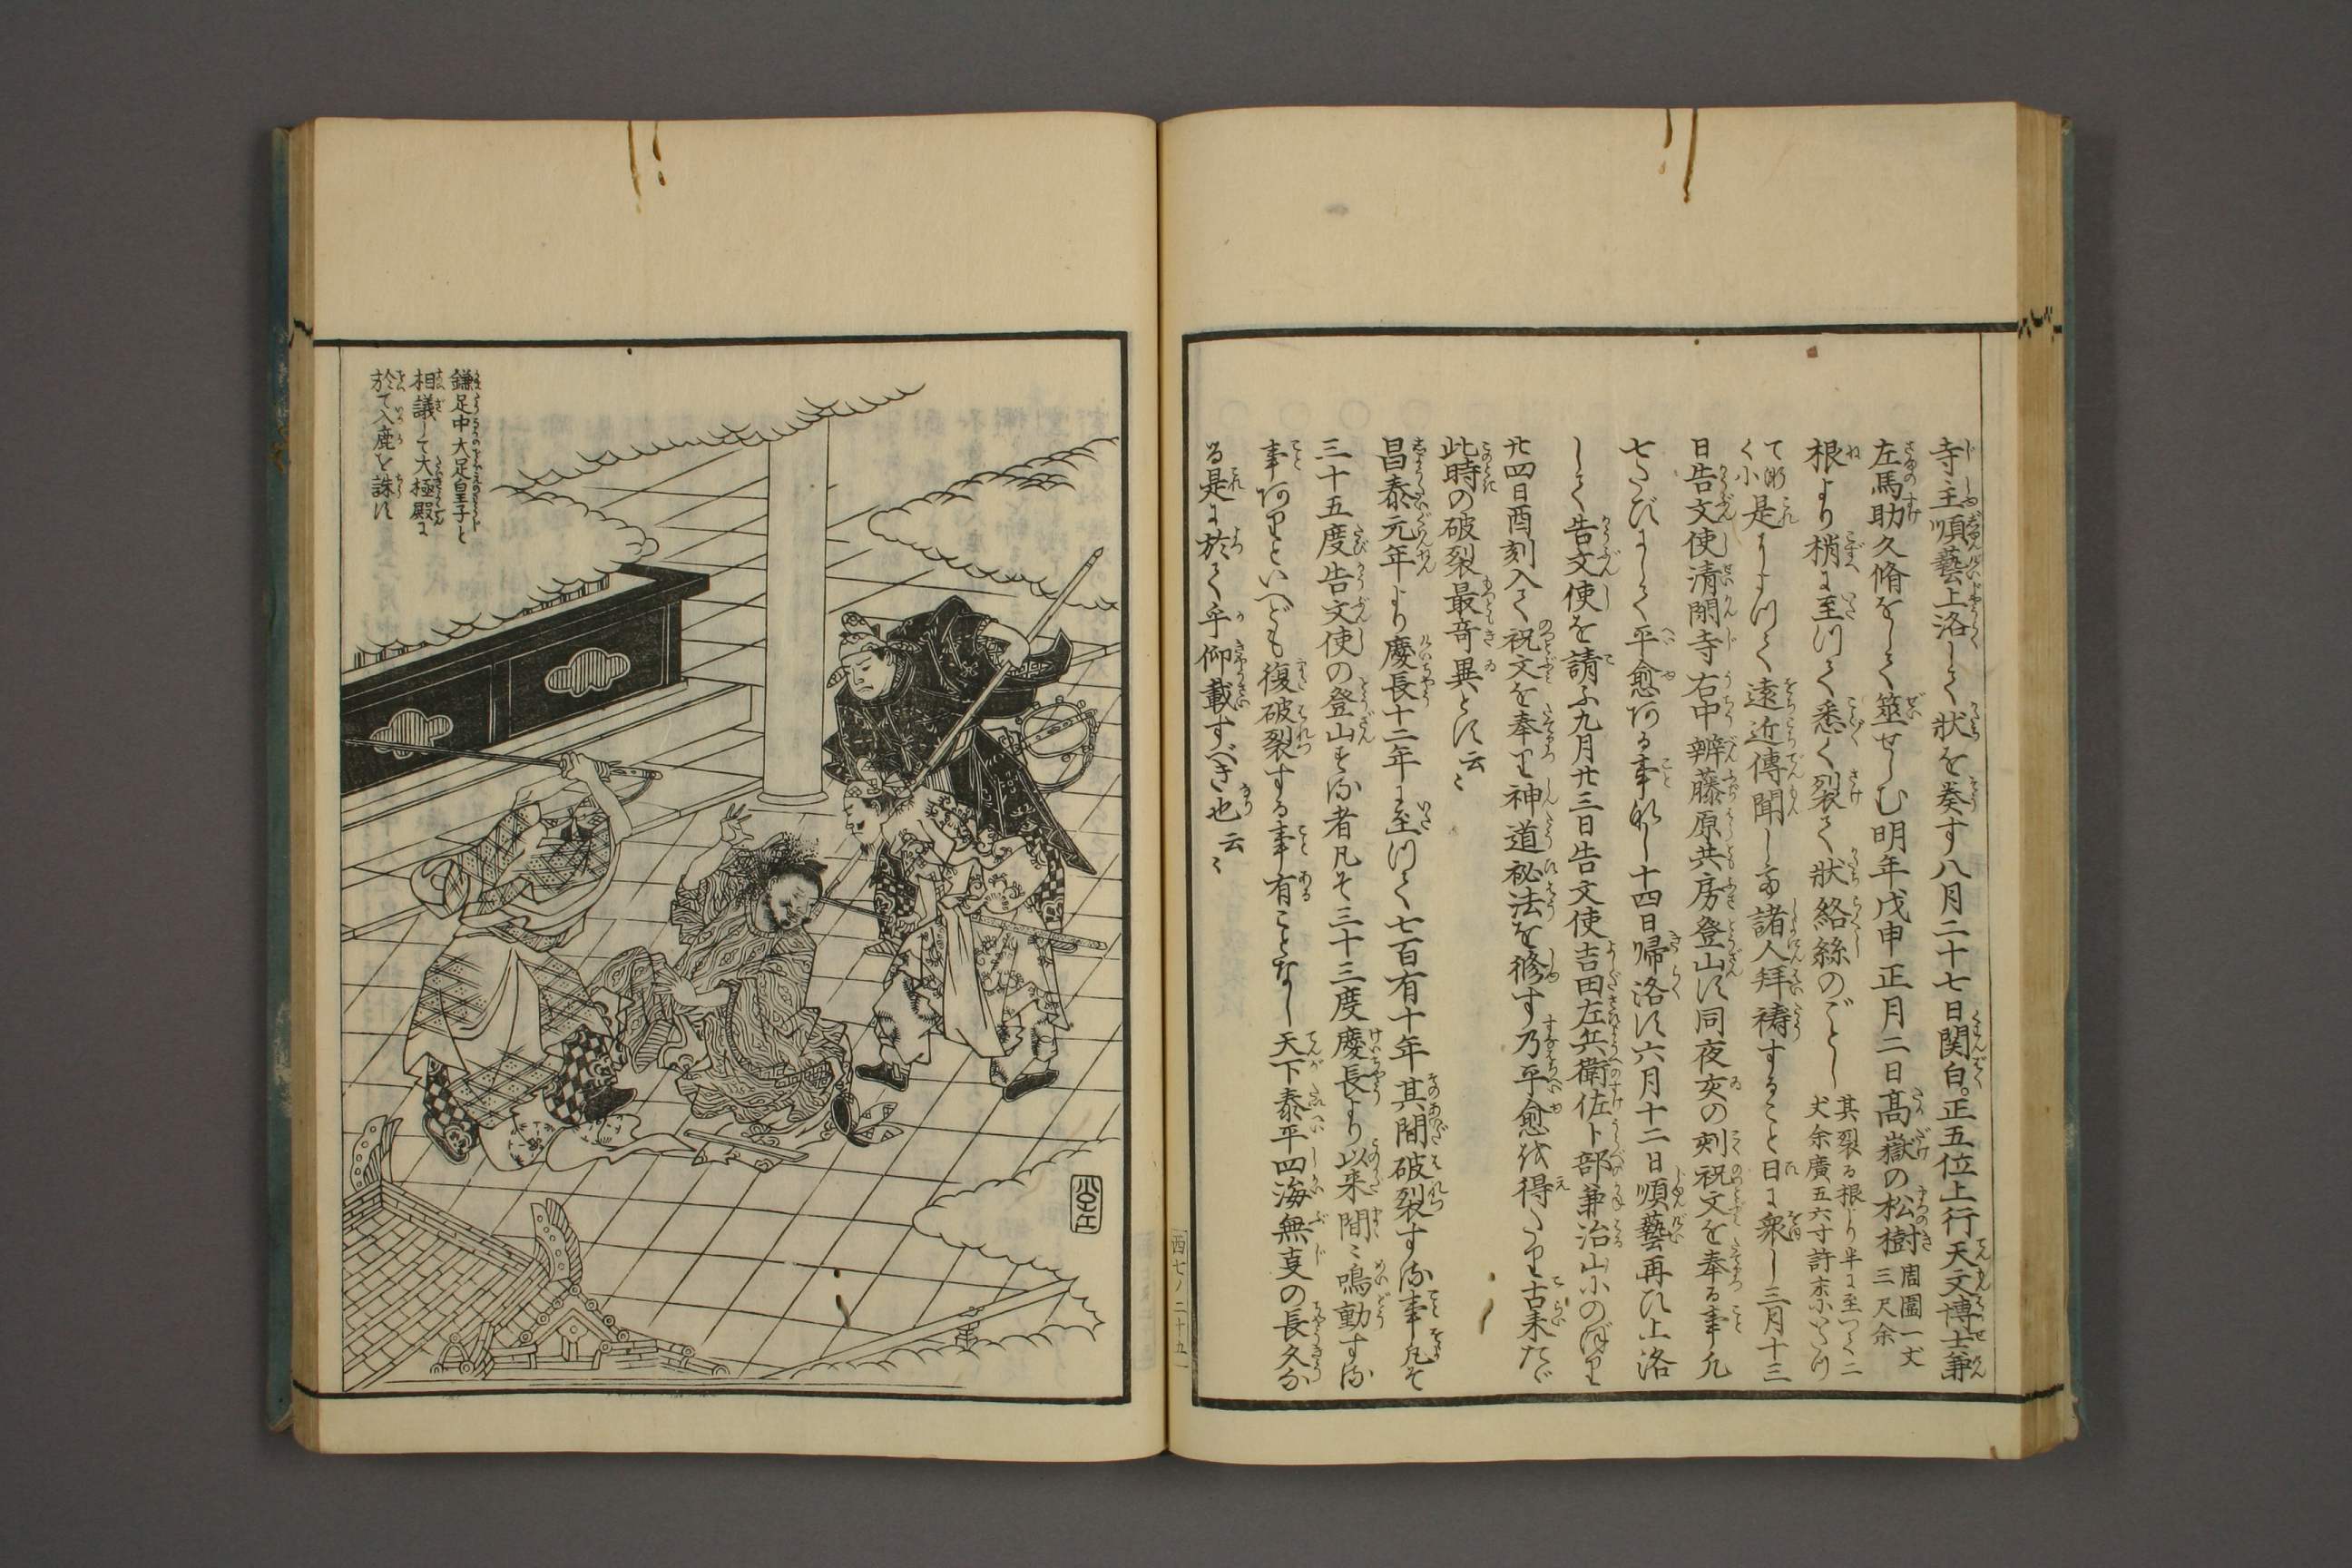 寺主順藝上洛して状を奏す八月二十七日関白。正五位上行天文博士兼
左馬助久脩をして筮せしむ明年戊申正月二日髙嶽の松樹周圍一丈三尺余
根より梢に至つて悉く裂て状絡絲のごとし其裂る根より半に至つて二丈余廣五六寸許末にいたつて粥く小
是によつて遠近傳聞して諸人拜禱すること日に衆し三月十三
日告文使清閑寺右中辨藤原共房登山す同夜亥の刻祝文を奉る事凡
七たびにして平愈ある事なし十四日帰洛す六月十二日順藝再ひ上洛
して告文使を請ふ九月廿三日告文使吉田左兵衛佐卜部兼治山にのぼり
廿四日酉刻入て祝文を奉り神道祕法を修す乃平愈を得たり古来たぐ
此時の破裂最竒異とす云々
昌泰元年より慶長十二年に至つて七百有十年其間破裂する事凡そ
三十五度告文使の登山する者凡そ三十三度慶長より以来間々鳴動する
事ありといへども復破裂する事有ことなし天下泰平四海無㕝の長久な
る是に於て乎仰載すべき也云々
西七ノ二十五
鎌足中大足皇子と
相議して大極殿に
於て入鹿を誅す